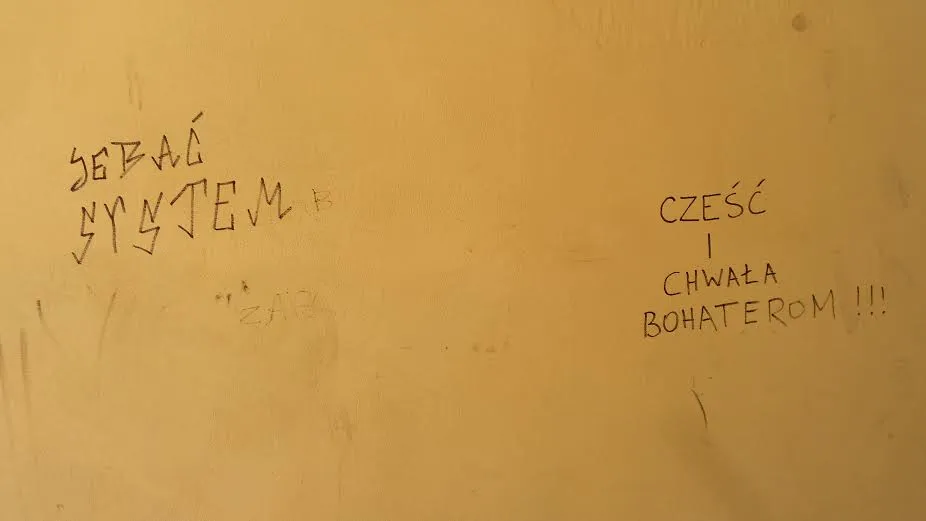 JEBAĆ
SYSTEM
CZEŚĆ
I
CHWAŁA
BOHATEROM !!!